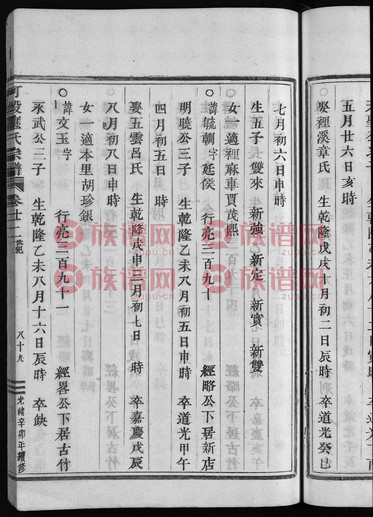 娶徑溪章氏 生乾隆戊戌十月初二日辰時 卒道光癸巳
五月廿六日亥時
七月初六日申時
生五子 雙來 新強 新定 新實 新雙
女一適徑麻車賈茂熙
○諱毓朝字廷侯 行亮三百九十 經略公下居新店
明曉公三子 生乾隆乙未八月初五日申時 卒道光甲午
四月初五日 時
娶五雲呂氏 生乾隆戊申三月初七日 時 卒嘉慶戊辰
八月初八日申時
女一適本里胡珍銀
○諱文玉字 行亮三百九十一 經畧公下居古竹
永武公三子 生乾隆乙未八月十六日辰時 卒缺
應氏宗譜 卷廿二
八十九
光緒辛卯年續修
族谱网
zupu.cn